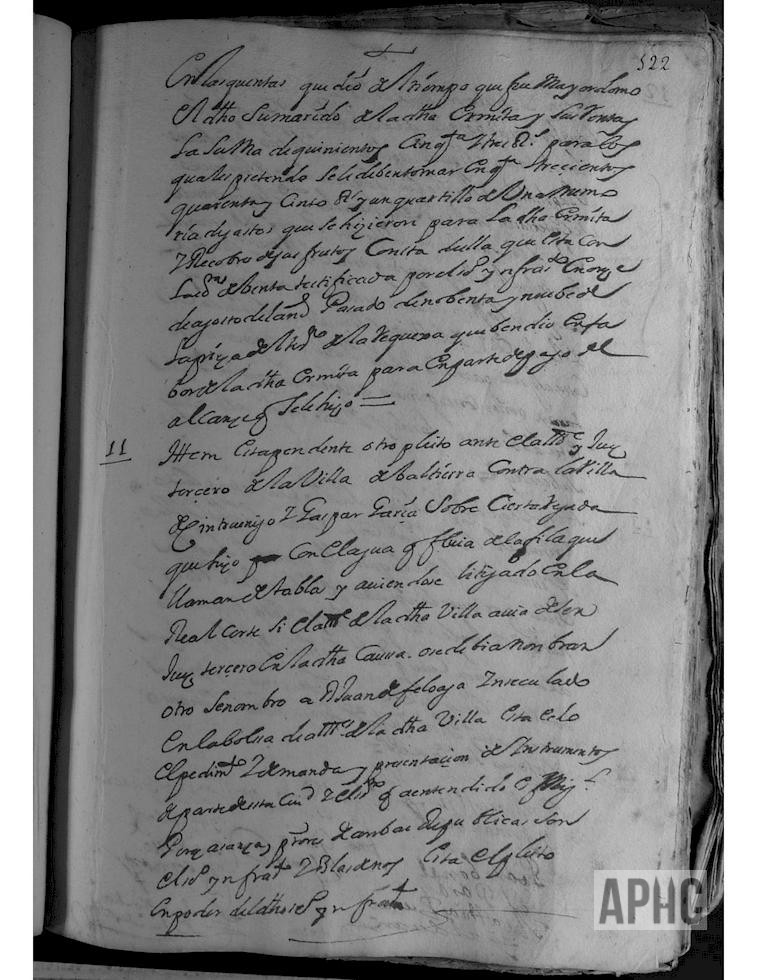 522
En las quentas que dio del tiempo que fue Mayordomo
El dho Su marido de la dha Ermita y Sus Rentas
La Suma de quinientos Cinqta y tres Rs para los
quales pretendo Se le deben tomar En qta trecientos
quarenta y Cinco Rs y un quartillo de Una memo
ria de gastos que Se hizieron para La dha Ermita
Y Recobro de sus frutos Consta de lla que esta Con
La de benta testificada por el io ynfrato En onze
de agosto del and Pasado de nobenta y nuebe de
La pieza del de la Requexa que bendio En fa
bor de la dha Ermita para En parte de pago del
alcanze q Se le hizo =
11 Ittem Esta pendente otro pleito ante el alde y Juez
tercero de la Villa de baltierra Contra la Villa
de Cintruenigo Y Gaspar Garcia Sobre Cierta
que hizo Con El agua q de la fila que
llaman de tabla y auiendose litijado En la
Real Corte Si El alde de la dha Villa auia de Ser
Juez tercero En la dha Causa o se debia nombrar
otro Se nombro a Dn Juan de feloaga Inseculado
En la bolsa de alldes de la dha Villa Esta
El pedimto Y demanda y presentacion de Instrumentos
de parte de esta Ciud Y q a entendido
de ambas Republicas Son
El io ynfrato Y Blas Esta El pleito
En poder del dho io ynfrato
APHC